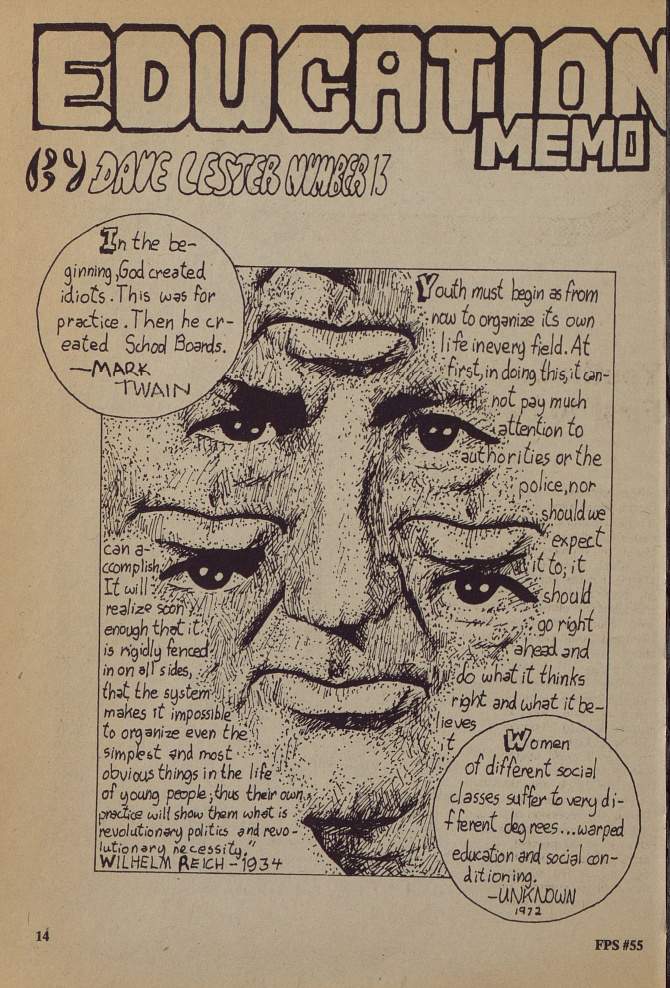 EDUCATION
MEMO
BY DAVE LESTER NUMBER 13
In the be-
ginning, God created
idiots. This was for
practice. Then he cr-
eated School Boards.
—MARK
TWAIN
Youth must begin as from
now to organize its own
life inevery field. At
first, in doing this, it can-
not pay much
attention to
authorities or the
police, nor
should we
expect
it to; it
should
go right
ahead and
do what it thinks
right and what it be-
lieves
t
can a-
ccomplish.
It will
realize soon
enough that it
is rigidly fenced
in on all sides,
that the system
makes it impossible
to organize even the
simplest and most
obvious things in the life
of young people; thus their own
practice will show them what is
revolutionary politics and revo-
lutionary necessity,"
WILHELM REICH - 1934
Women
of different social
classes suffer to very di-
fferent degrees... warped
education and social con-
ditioning.
-UNKNOWN
1972
14
FPS #55